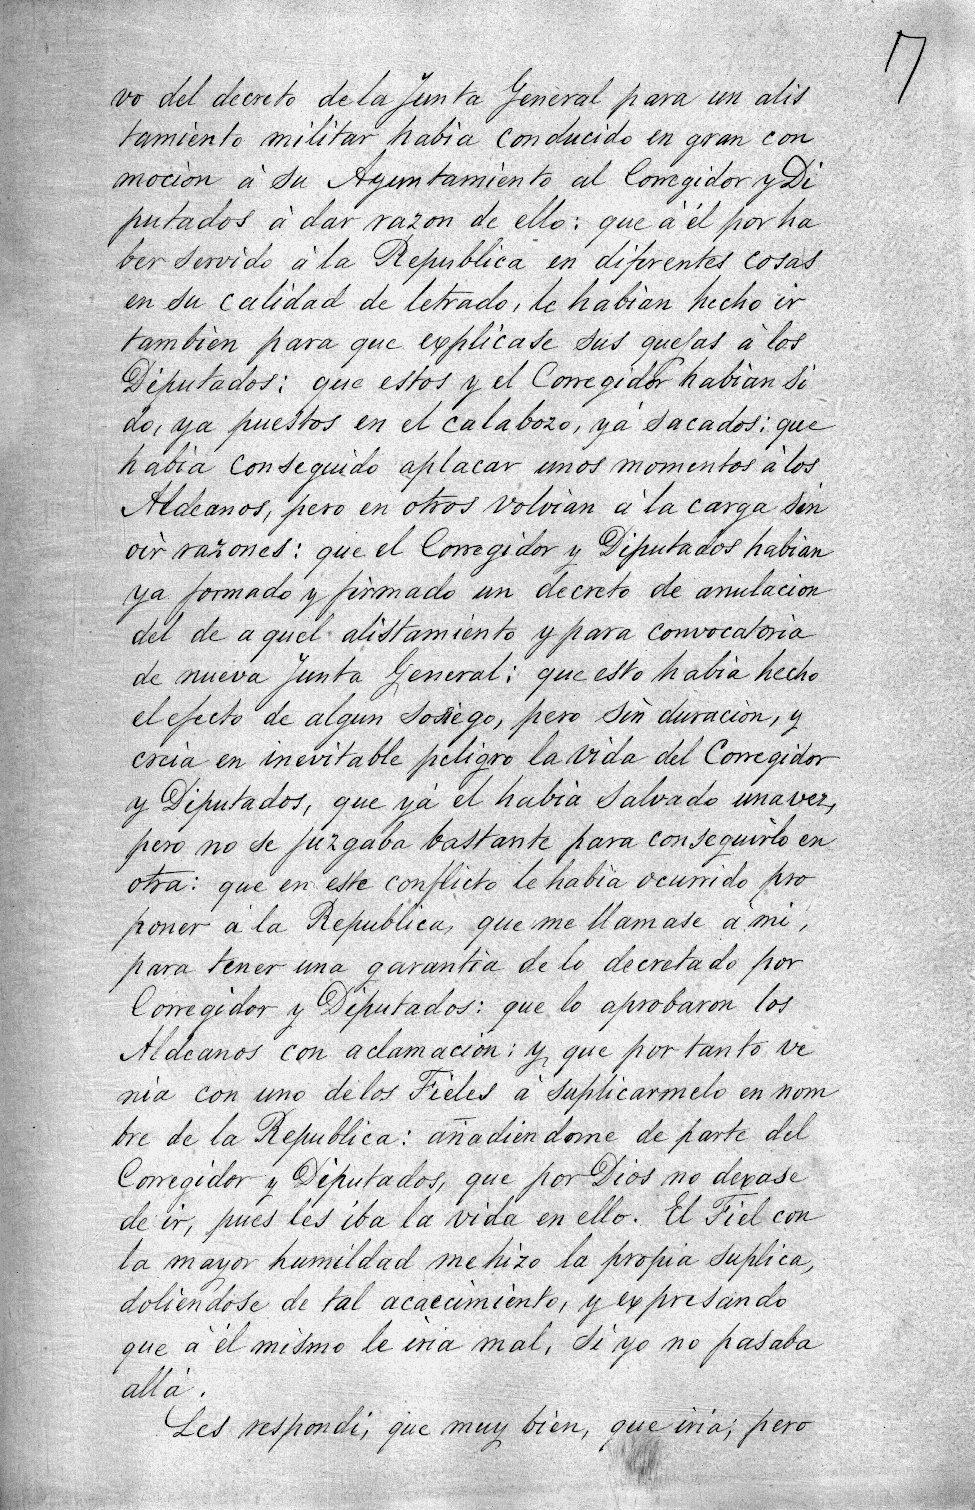 17
vo del decreto de la Junta General para un alis
tamiento militar habia conducido en gran con
mocion à su Ayuntamiento al Corregidor y Di
putados à dar razon de ello: que à él por ha
ber servido à la Republica en diferentes cosas
en su calidad de letrado, le habian hecho ir
tambien para que explicase sus quejas à los
Diputados: que estos y el Corregidor habian si
do, ya puestos en el calabozo, yá sacados: que
habia conseguido aplacar unos momentos à los
Aldeanos, pero en otros volvian à la carga sin
oir razones: que el Corregidor y Diputados habian
ya formado y firmado un decreto de anulacion
del de aquel alistamiento y para convocatoria
de nueva Junta General: que esto habia hecho
el efecto de algun sosiego, pero sin duracion, y
creia en inevitable peligro la vida del Corregidor
y Diputados, que yá el habia salvado una vez,
pero no se juzgaba bastante para conseguirlo en
otra: que en este conflicto le habia ocurrido pro
poner à la Republica, que me llamase à mi,
para tener una garantia de lo decretado por
Corregidor y Diputados: que lo aprobaron los
Aldeanos con aclamacion: y que por tanto ve
nia con uno de los Fieles à suplicarmelo en nom
bre de la Republica: añadiendome de parte del
Corregidor y Diputados, que por Dios no dexase
de ir, pues les iba la vida en ello. El Fiel con
la mayor humildad me hizo la propia suplica,
doliendose de tal acaecimiento, y expresando
que à él mismo le iria mal, si yo no pasaba
allà.
Les respondi, que muy bien, que iria; pero